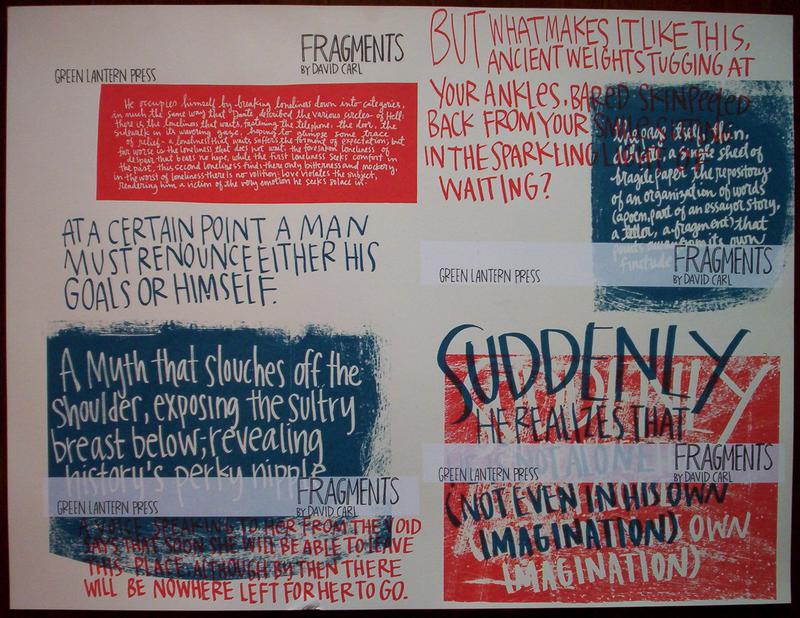 GREEN LANTERN PRESS
FRAGMENTS
BY DAVID CARL
He occupies himself by breaking loneliness down into categories,
in much the same way that Dante described the various circles of Hell:
there is the loneliness that waits, fastening the telephone, the door, the
sidewalk in its wavering gaze, hoping to glimpse some trace
of relief - a loneliness that waits suffers the torment of expectation; but
far worse is the loneliness that does not wait, the forlorn loneliness of
despair that bears no hope, while the first loneliness seeks comfort in
the past, this second loneliness finds there only bitterness and mockery.
in the worst of loneliness there is no volition: love violates the subject,
rendering him a victim of the very emotion he seeks solace in.
AT A CERTAIN POINT A MAN
MUST RENOUNCE EITHER HIS
GOALS OR HIMSELF.
A Myth that slouches off the
shoulder, exposing the sultry
breast below; revealing
history's perky nipple
GREEN LANTERN PRESS
FRAGMENTS
BY DAVID CARL
A VOICE SPEAKING TO HER FROM THE VOID
SAYS THAT SOON SHE WILL BE ABLE TO LEAVE
THIS PLACE, ALTHOUGH BY THEN THERE
WILL BE NOWHERE LEFT FOR HER TO GO.
BUT WHAT MAKES IT LIKE THIS,
ANCIENT WEIGHTS TUGGING AT
YOUR ANKLES, BARED SKIN PEELED
BACK FROM YOUR SMILE
IN THE SPARKLING
WAITING?
the page itself is thin,
a single shed of
fragile paper, the repository
of an organization of words
(a poem, part of an essay or story,
a letter, a fragment) that
points away from its own
finitude
GREEN LANTERN PRESS
FRAGMENTS
BY DAVID CARL
SUDDENLY
SUDDENLY
HE REALIZES THAT
HE IS NOT ALONE
GREEN LANTERN PRESS
FRAGMENTS
BY DAVID CARL
(NOT EVEN IN HIS OWN
IMAGINATION)
OWN
IMAGINATION)